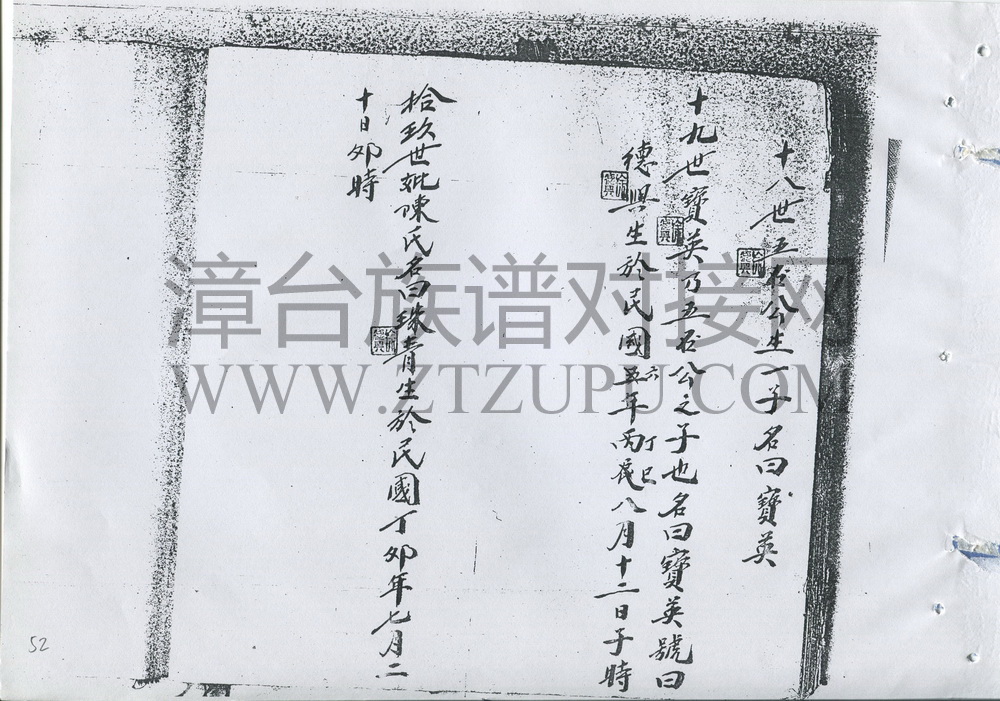 十八世五石公生一子名曰寶英
十九世寶英乃五石公之子也名曰寶英號曰
德興生於民國五年丙辰八月十二日子時
六 丁巳
拾玖世妣陳氏名曰珠青生於民國丁卯年七月二
十日卯時
漳台族谱对接网
WWW.ZTZUPU.COM
52